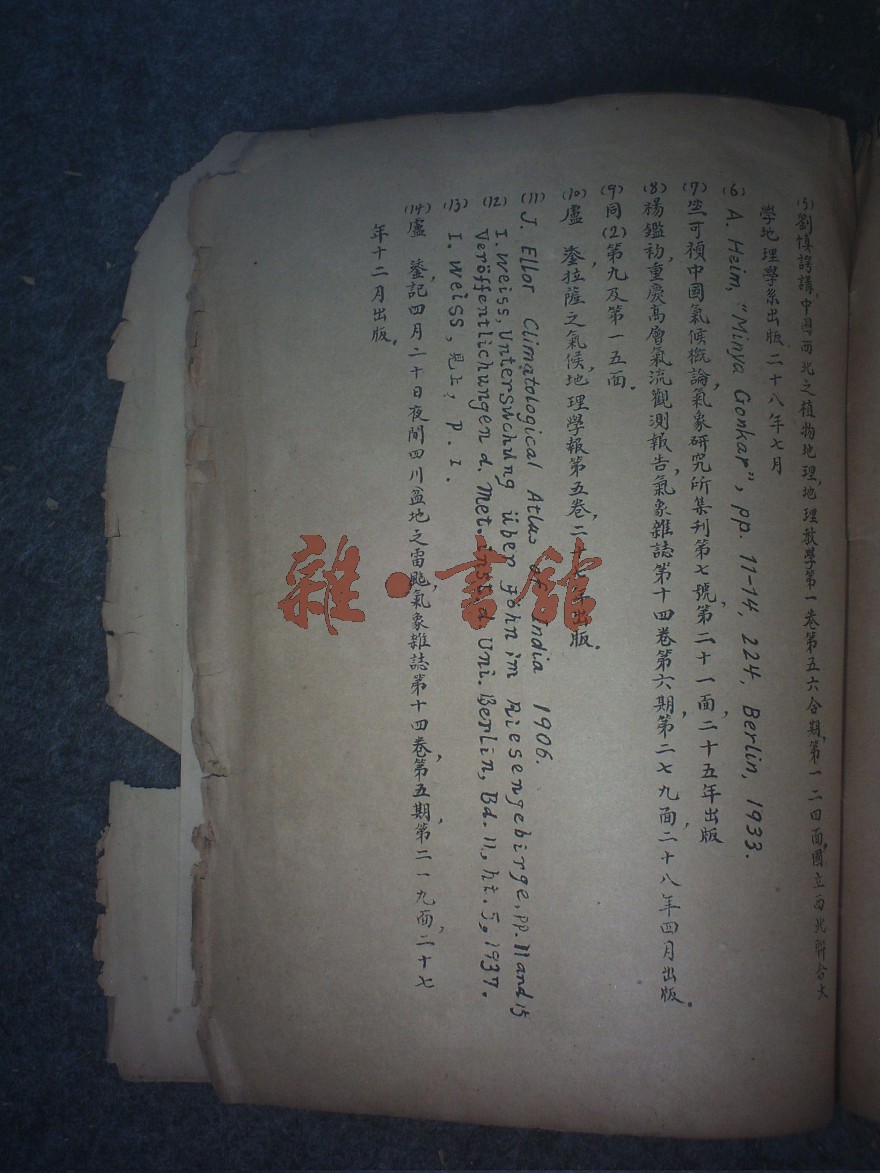 (5)劉慎諤講,中國西北之植物地理,地理教學第一卷第五六合期,第一二四面,國立西北聯合大
學地理學系出版 二十八年七月
(6) A. Heim, "Minya Gonkar", pp. 11-14, 224, Berlin, 1933.
(7)竺可楨中國氣候概論,氣象研究所集刊第七號,第二十一面,二十五年出版
(8)楊鑑初,重慶高層氣流觀測報告,氣象雜誌第十四卷第六期,第二七九面,二十八年四月出版。
(9)同(2)第九及第一五面。
(10)盧 鋈,拉薩之氣候,地理學報第五卷,二十七年出版。
(11) J. Ellor Climatological Atlas of India 1906.
(12) I. Weiss, Unterswchung über Föhn im Riesengebirge, pp. 11 and 15
Veröffentlichungen d. Met. Inst. d Uni. Berlin, Bd. 11, ht. 5, 1937.
(13) I. Weiss, 見上, P. I.
(14)盧 鋈,記四月二十日夜間四川盆地之雷颮,氣象雜誌第十四卷,第五期第二一九面,二十七
年十二月出版。
雜·書館